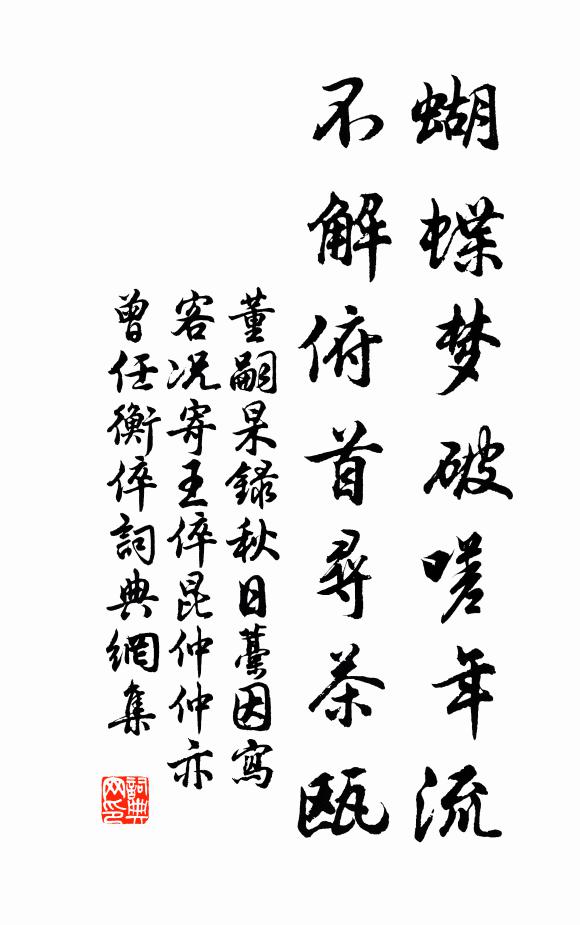 蝴蝶梦破嗟年流
不解俯首尋茶甌
董嗣杲録秋日藁因寫
客况寄王倅昆仲仲亦
曾任衡倅詞典網集
詞典网印